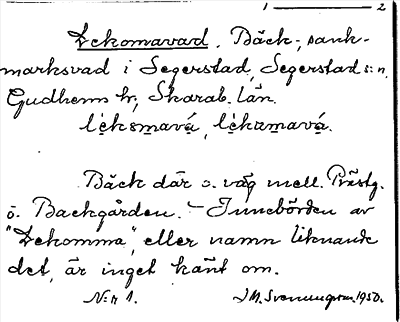 1 — 2
Lekomavad. Bäck-, sank-
marksvad i Segerstad, Segerstad s:n,
Gudhems hr, Skarab. län.
lèkəmavá,
Bäck där o. väg mell. Prästg.
o. Backgården. – Innebörden av
"Lekomma", eller namn liknande
det, är inget känt om.
N:r 1. J.M. Svenungson. 1950.